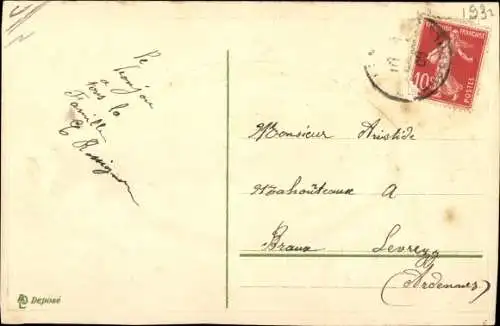 1932
10c
POSTES
Le
bonjour
a
tous la
Famille
E Rossignon
Monsieur Aristide
Mahoûteaux A
Braux Levrezy
(Ardennes)
Deposé